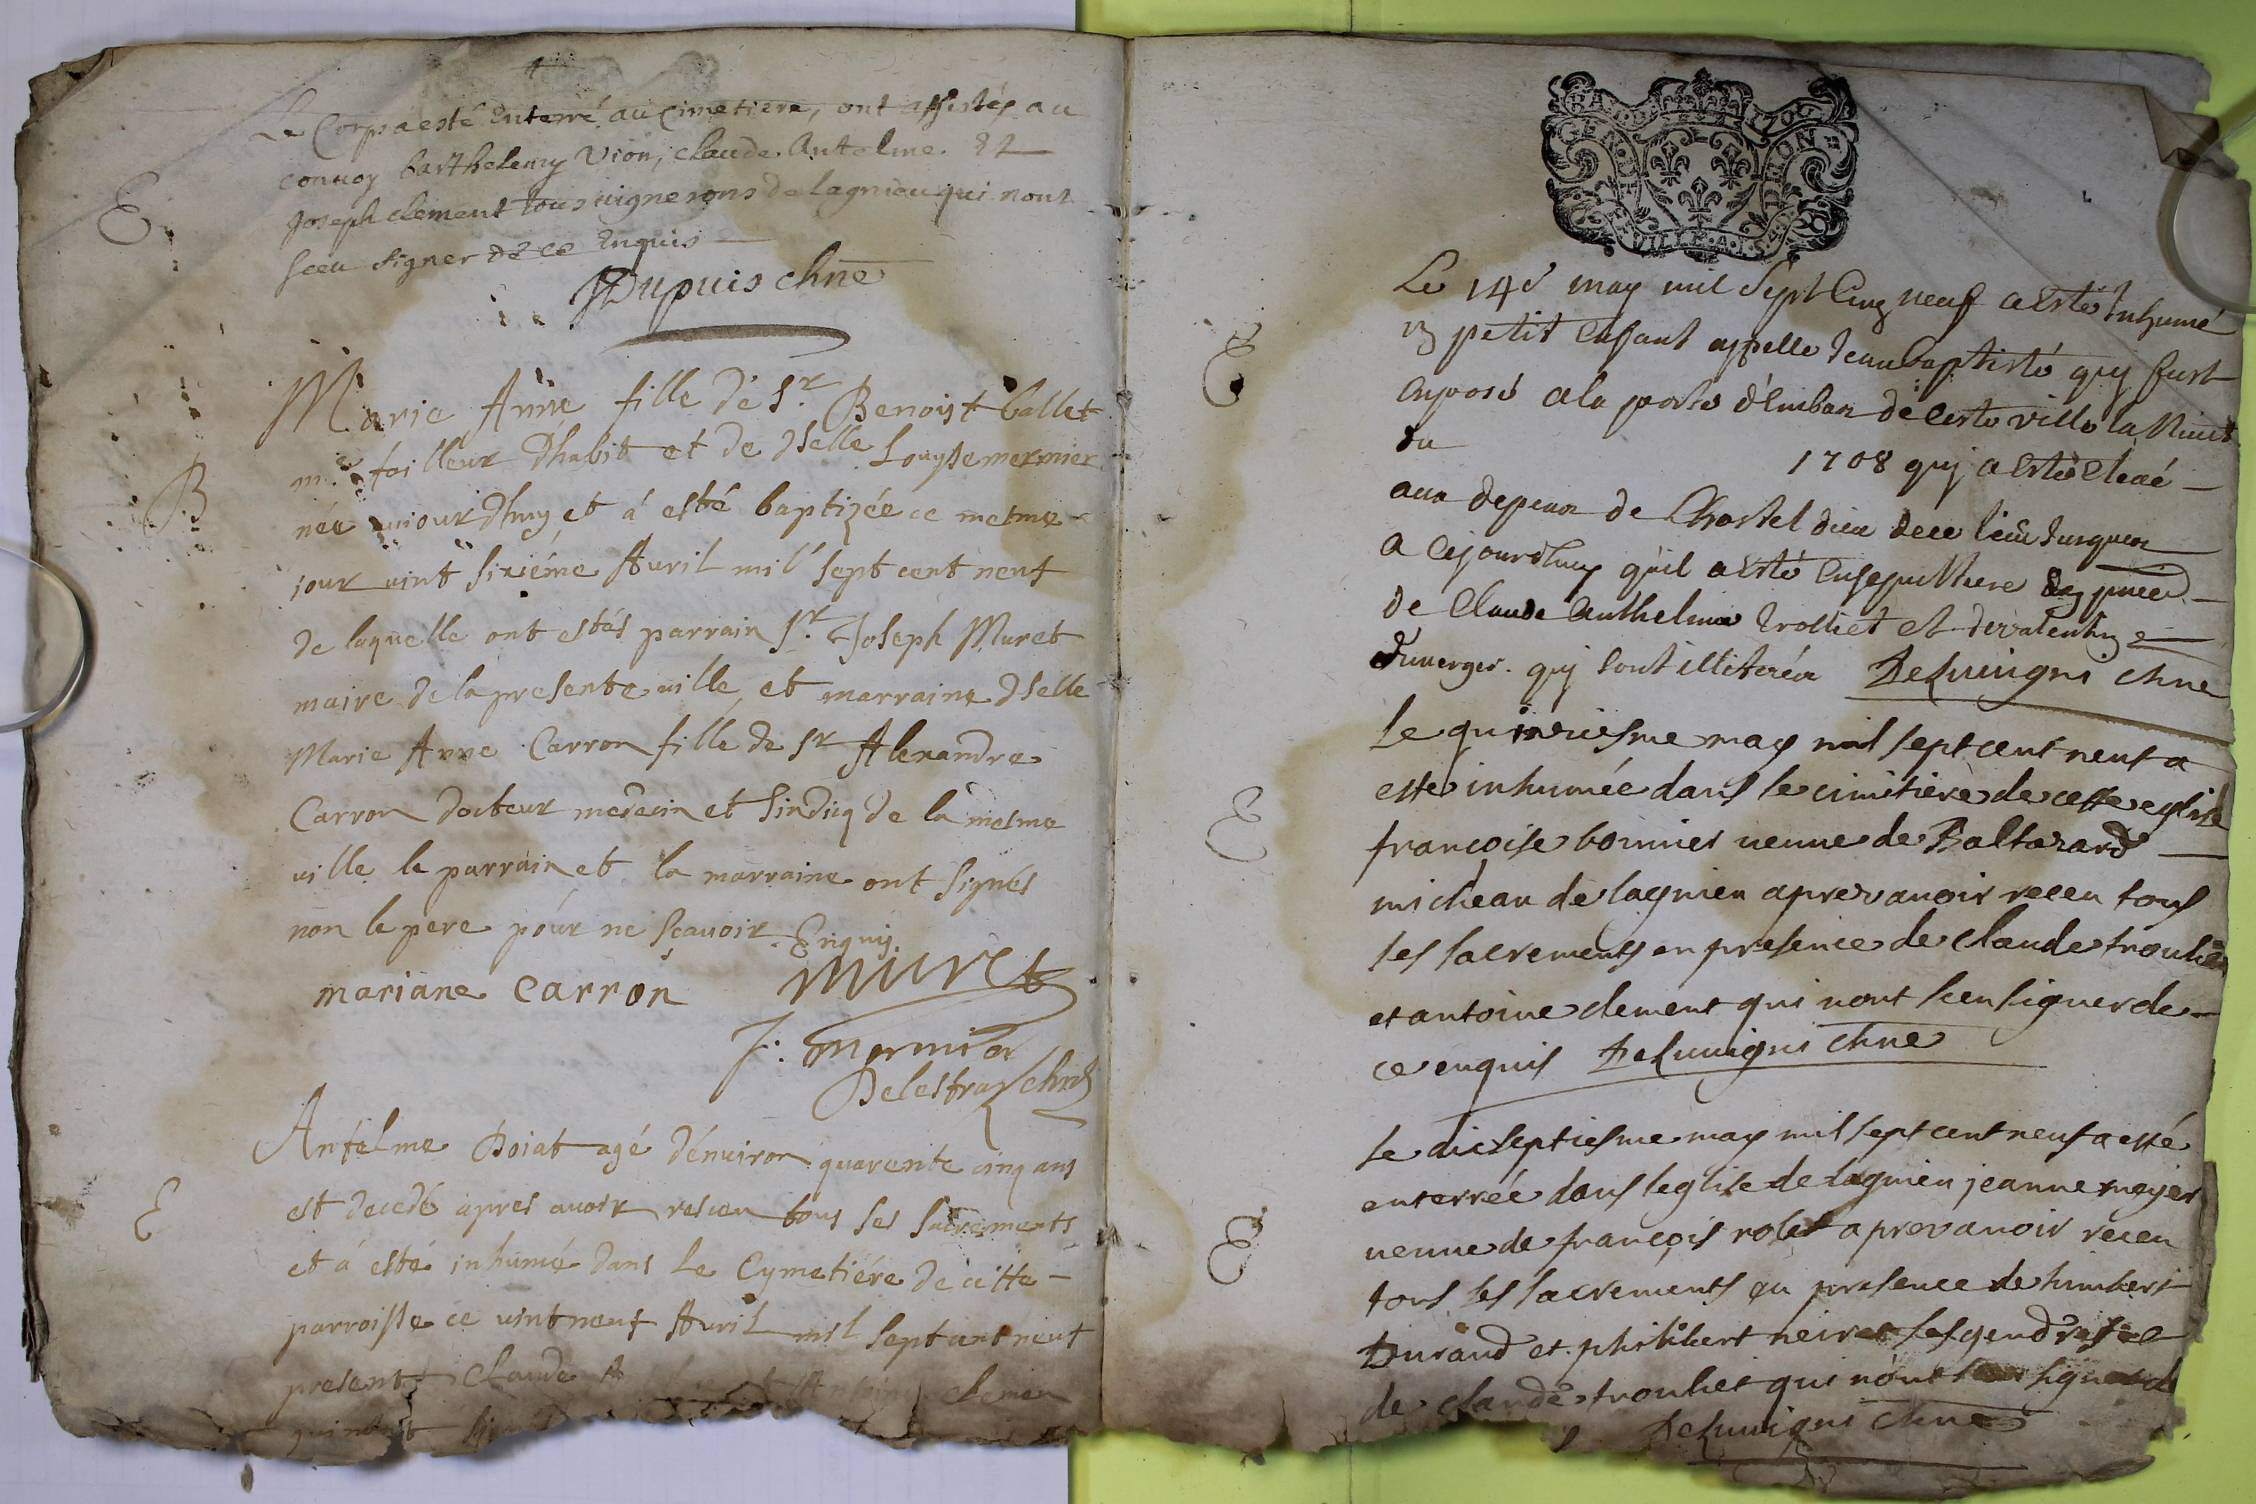 Le Corps a esté Enterré au Cimetiere, ont assistés au
conuoy barthelemy Vion, claude Antelme Et
Joseph clement tous uignerons de lagnieu qui nont
sceu signer de ce Enquis
Dupuis chne
E
Marie Anne fille de Sr. Benoist ballet
me. tailleur d'habit et de dselle Louyse mermier
née auiourdhuy et á esté baptizée ce mesme
iour uint sixiéme Auril mil sept cent neuf
de laquelle ont estés parrain Sr. Joseph Muret
maire de la presente uille et marraine dselle
Marie Anne Carron fille de Sr Alexandre
Carron docteur medecin et sindicq de la mesme
uille le parrain et la marraine ont signés
non le pere póur ne scauoir Enquis
B
mariane carron muret
J: mermier
Delestraz chne
Antelme Boiat agé d'énuiron quarente cinq ans
est decedé apres auoir resceu tous ses sacrements
et á esté inhumé dans Le Cymetiére de cette
parroisse ce uintneuf Auril mil septcent neuf
presents Claude A clemen
qui n'ont
E
GEN DE
1709
VILLE
Le 14e may mil sept Cens neuf a Esté Inhumé
un petit Enfant appelle Jean baptiste quy fust
Exposé a la porte d'Embas de ceste ville la Nuict
du 1708 quy a Esté Eleué
aux depens de Lhostel dieu de ce lieu Jusques
a ce jourdhuy qu'il a Esté Ensepulture En pnce
de Claude Anthelme Trolliet et de valentin
duuerger quy sont illiterés Deluuigni chne
E
le quinziesme may mil sept cent neuf a
esté inhumée dans le cimitiere de cette eglise
françoise bonnier ueuue de Baltazard
michean de lagnieu aprez auoir receu tous
ses sacrements en presence de claude trouliet
et antoine clement qui nont sceu signer de
ce enquis Deluuigni chne
E
le dixseptiesme may mil sept cent neuf a esté
enterrée dans leglise de lagnieu jeanne moyer
ueuue de françois rolet aprez auoir receu
tous ses sacrements en presence de humbert
Durand et philibert neiret ses gendres et
de claude trouliet qui nont sceu signer de
Deluuigni chne
E